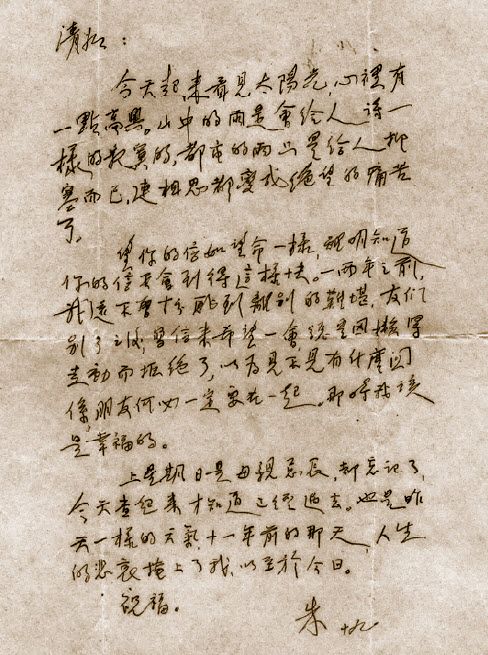 清如：
今天起來看見太陽光，心裡有
一點高興。山中的雨是會給人 詩一
樣的寂寞的，都市的雨只是給人抑
塞而已，連相思都變成絕望的痛苦
了。
望你的信如望命一樣，雖明知道
你的信不會到得這樣快。一兩年之前，
我還不曾十分感到離別的難堪，友們
別了之後，寫信來希望一會總是因懶得
走動而拒絕了，以為見不見有什麼關
係，朋友何必一定要在一起。那時我該
是幸福的。
上星期日是母親忌辰，却忘記了，
今天查起來才知道已經過去。也是昨
天一樣的天氣，十一年前的那天，人生
的悲哀掩上了我，以至於今日。
祝福。
朱 十九